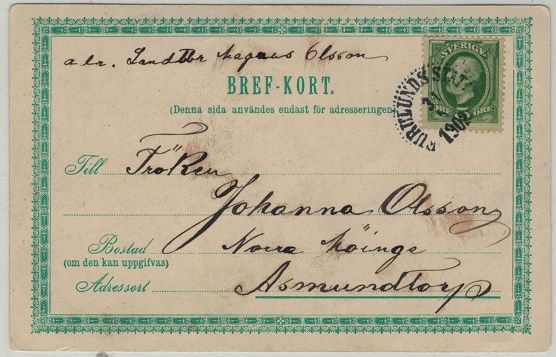 adr. Landtbr Magnus Olsson
SVERIGE
BREF-KORT.
(Denna sida användes endast för adresseringen)
FURULUNDS STAT
1908
Till Fröken
Johanna Olsson
Bostad Norra Möinge
(om den kan uppgifvas)
Adressort Asmundtorp